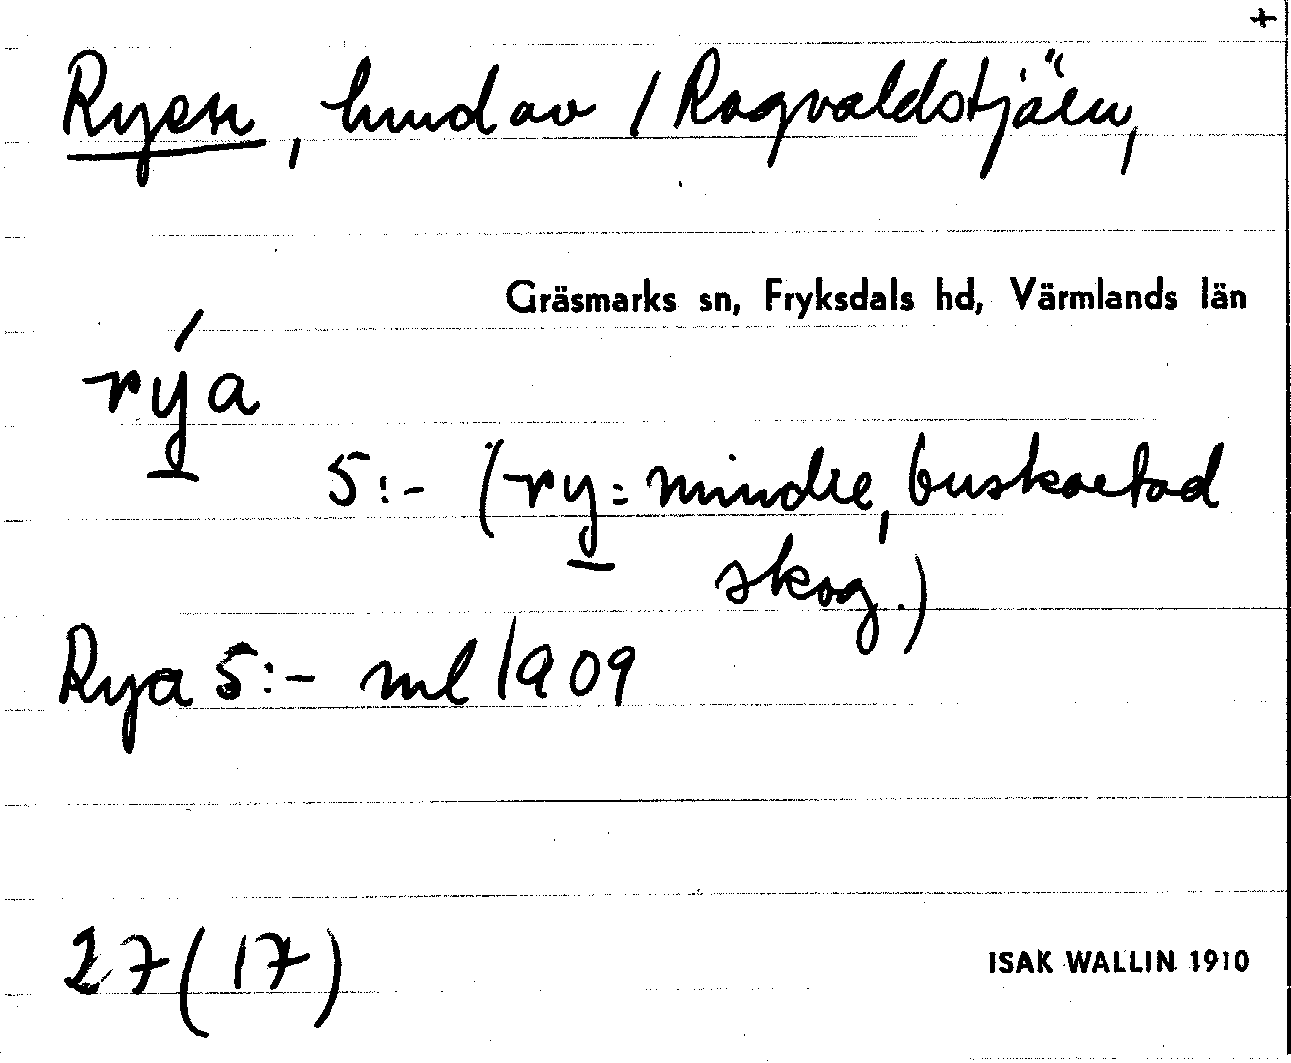 +
Ryen, hmd av 1 Ragvaldstjärn,
Gräsmarks sn, Fryksdals hd, Värmlands län
rýa
5:- (ry = mindre, buskartad
skog.)
Rya 5:- ml 1909
27(17)
ISAK WALLIN 1910